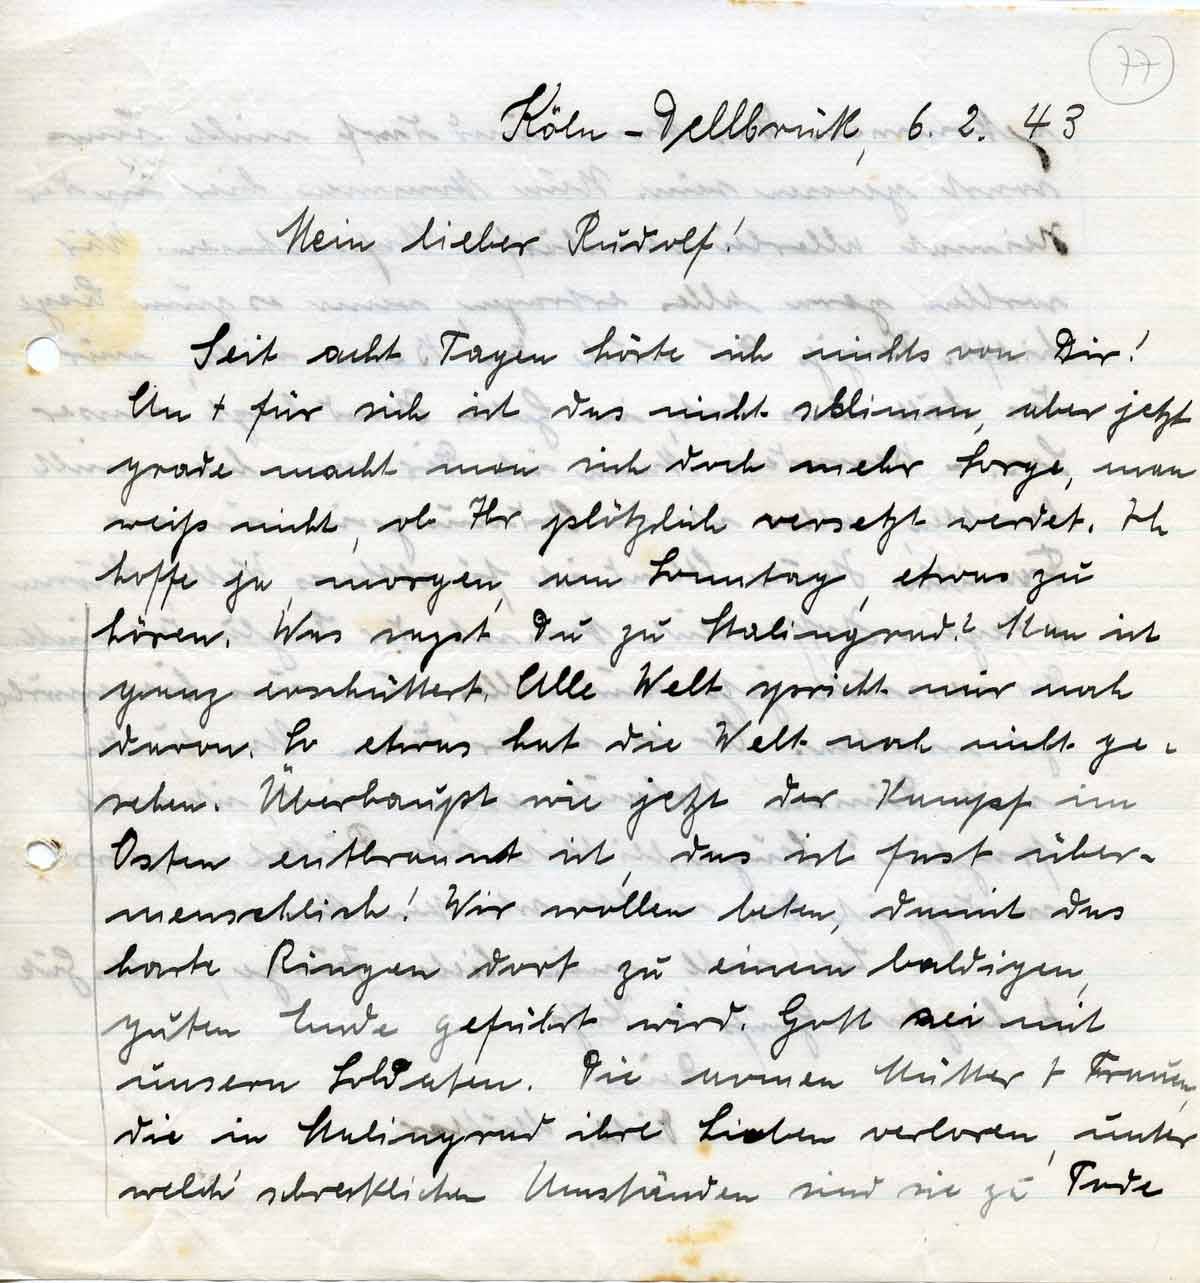 77
Köln - Dellbrück, 6. 2. 43
Mein lieber Rudolf!
Seit acht Tagen hörte ich nichts von Dir!
An + für sich ist das nicht schlimm, aber jetzt
grade macht man sich doch mehr Sorge, man
weiß nicht, ob Ihr plötzlich versetzt werdet. Ich
hoffe ja, morgen, am Sonntag, etwas zu
hören. Was sagst Du zu Stalingrad? Man ist
ganz erschüttert. Alle Welt spricht nur noch
davon. So etwas hat die Welt noch nicht ge-
sehen. Überhaupt wie jetzt der Kampf im
Osten entbrannt ist, das ist fast über-
menschlich! Wir wollen beten, damit das
harte Ringen dort zu einem baldigen,
guten Ende geführt wird. Gott sei mit
unsern Soldaten. Die armen Mütter + Frauen,
die in Stalingrad ihre Lieben verloren, unter
welch' schrecklichen Umständen sind sie zu Tode